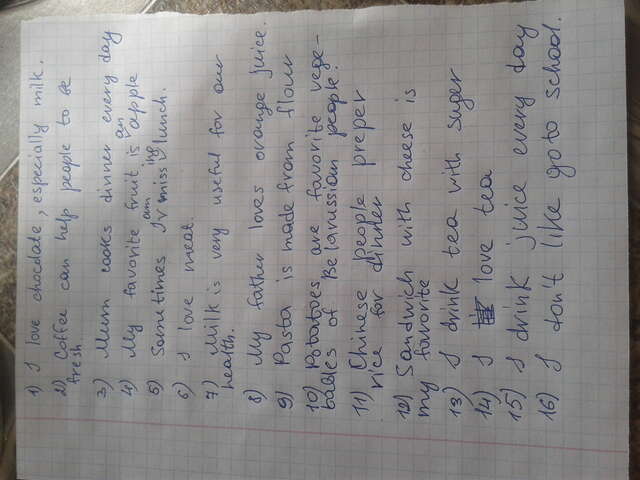 1) I love chocolate, especially milk.
2) Coffee can help people to be
fresh.
3) Mum cooks dinner every day
4) My favorite fruit is an apple
5) Sometimes I am missing lunch.
6) I love meat.
7) Milk is very useful for our
health.
8) My father loves orange juice.
9) Pasta is made from flour
10) Potatoes are favorite vege-
tables of Belarussian people.
11) Chinese people preper
rice for dinner
12) Sandwich with cheese is
my favorite
13) I drink tea with suger
14) I love tea
15) I drink juice every day
16) I don't like go to school.